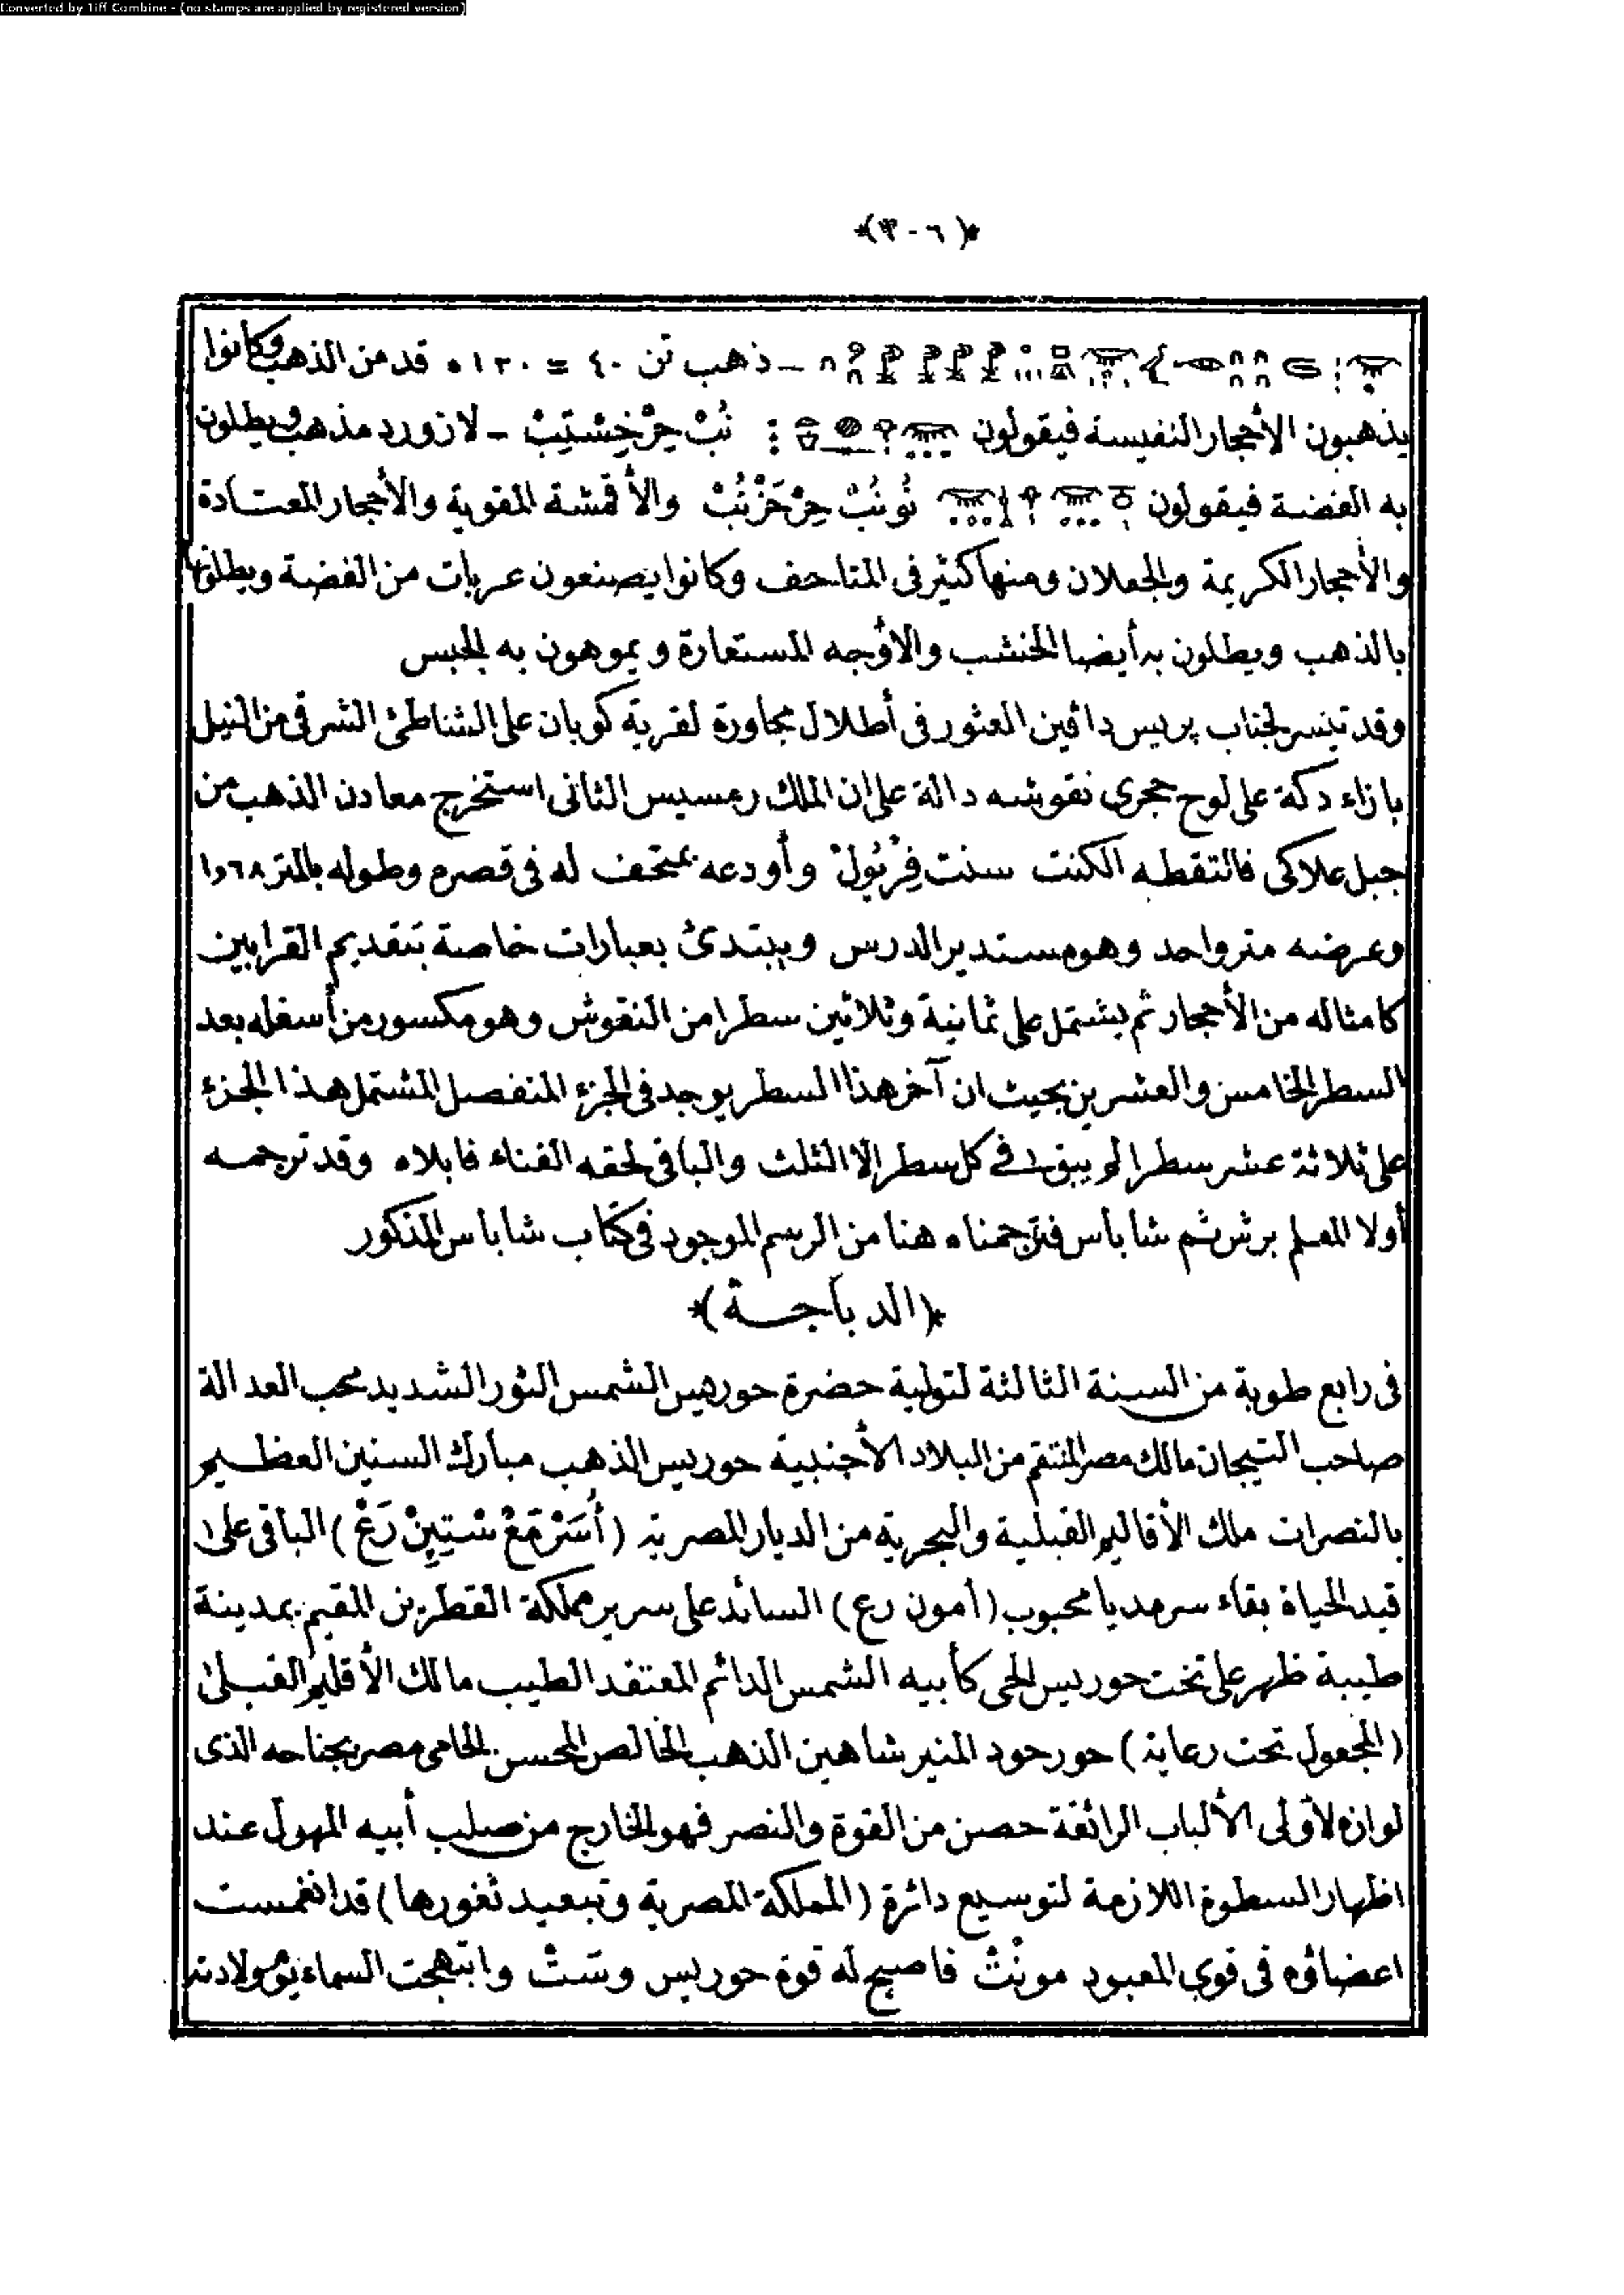 Converted by Tiff Combine - (no stamps are applied by registered version)
﴿٣٠٦﴾
ذهب تن ٤٠ = ٥١٣٠ قد من الذهب وكانوا
يذهبون الأحجار النفيسة فيقولون نُبْ حِرْ خِسْتِبْ - لازورد مذهب ويطلون
به الفضة فيقولون نُونُبْ حِرْ حَزْنُبْ والأقمشة المقوية والأحجار المعتادة
والأحجار الكريمة والجعلان ومنها كثير فى المتاحف وكانوا يصنعون عربات من الفضة ويطلونها
بالذهب ويطلون به أيضا الخشب والاوجه المستعارة ويموهون به الجبس
وقد تيسر لجناب پريس دافين العثور فى أطلال مجاورة لقرية كوبان على الشاطئ الشرقى من النيل
بازاء دكة على لوح حجرى نقوشه دالة على ان الملك رمسيس الثانى استخرج معادن الذهب من
جبل علاكى فالتقطه الكنت سنت فِرْيُولْ وأودعه بمتحف له فى قصره وطوله بالمتر ١٫٦٨
وعرضه متر واحد وهو مستدير الدرس ويبتدئ بعبارات خاصة بتقديم القرابين
كامثاله من الأحجار ثم يشتمل على ثمانية وثلاثين سطرا من النقوش وهو مكسور من أسفله بعد
السطر الخامس والعشرين بحيث ان آخر هذا السطر يوجد فى الجزء المنفصل المشتمل هذا الجزء
على ثلاثة عشر سطرا لم يبق فى كل سطر إلا الثلث والباقى لحقه الفناء فابلاه وقد ترجمه
أولا المعلم برش ثم شاباس فترجمناه هنا من الرسم الموجود فى كتاب شاباس المذكور
﴿الديباجة﴾
فى رابع طوبة من السنة الثالثة لتولية حضرة حوريس الشمس الثور الشديد محب العدالة
صاحب التيجان مالك مصر المنتقم من البلاد الأجنبية حوريس الذهب مبارك السنين العظيم
بالنصرات ملك الأقاليم القبلية والبحرية من الديار المصرية (أُسَرْ مَعْ سْتِپِنْ رَعْ) الباقى على
قيد الحياة بقاء سرمديا محبوب (أمون رع) السائد على سرير مملكة القطرين المقيم بمدينة
طيبة ظهر على تخت حوريس الحى كأبيه الشمس الدائم المعتقد الطيب مالك الأقليم القبلى
(المجعول تحت رعاية) حور حود المنير شاهين الذهب الخالص المحسن الحامى مصر بجناحه الذى
لوازه لأولى الألباب الرائقة حصن من القوة والنصر فهو الخارج من صلب أبيه المهول عند
اظهار السطوة اللازمة لتوسيع دائرة (المملكة المصرية وتبعيد ثغورها) قد انغمست
اعضاؤه فى قوى المعبود مونْثْ فاصبح له قوة حوريس وسَتْ وابتهجت السماء يوم ولادته